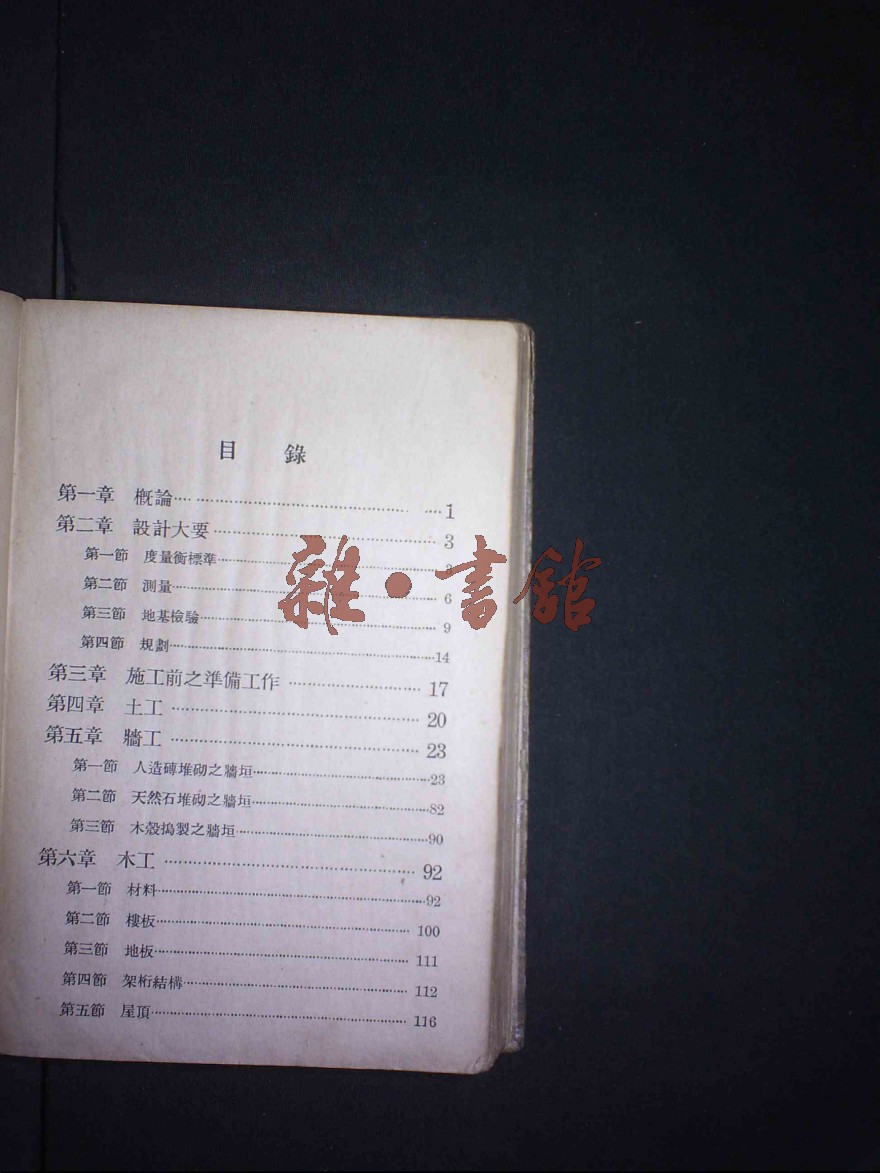 目 錄
第一章 概論……………………1
第二章 設計大要……………………3
第一節 度量衡標準……………………3
第二節 測量……………………6
第三節 地基檢驗……………………9
第四節 規劃……………………14
第三章 施工前之準備工作……………………17
第四章 土工……………………20
第五章 牆工……………………23
第一節 人造磚堆砌之牆垣……………………23
第二節 天然石堆砌之牆垣……………………82
第三節 木殼搗製之牆垣……………………90
第六章 木工……………………92
第一節 材料……………………92
第二節 樓板……………………100
第三節 地板……………………111
第四節 架桁結構……………………112
第五節 屋頂……………………116
雜·書館